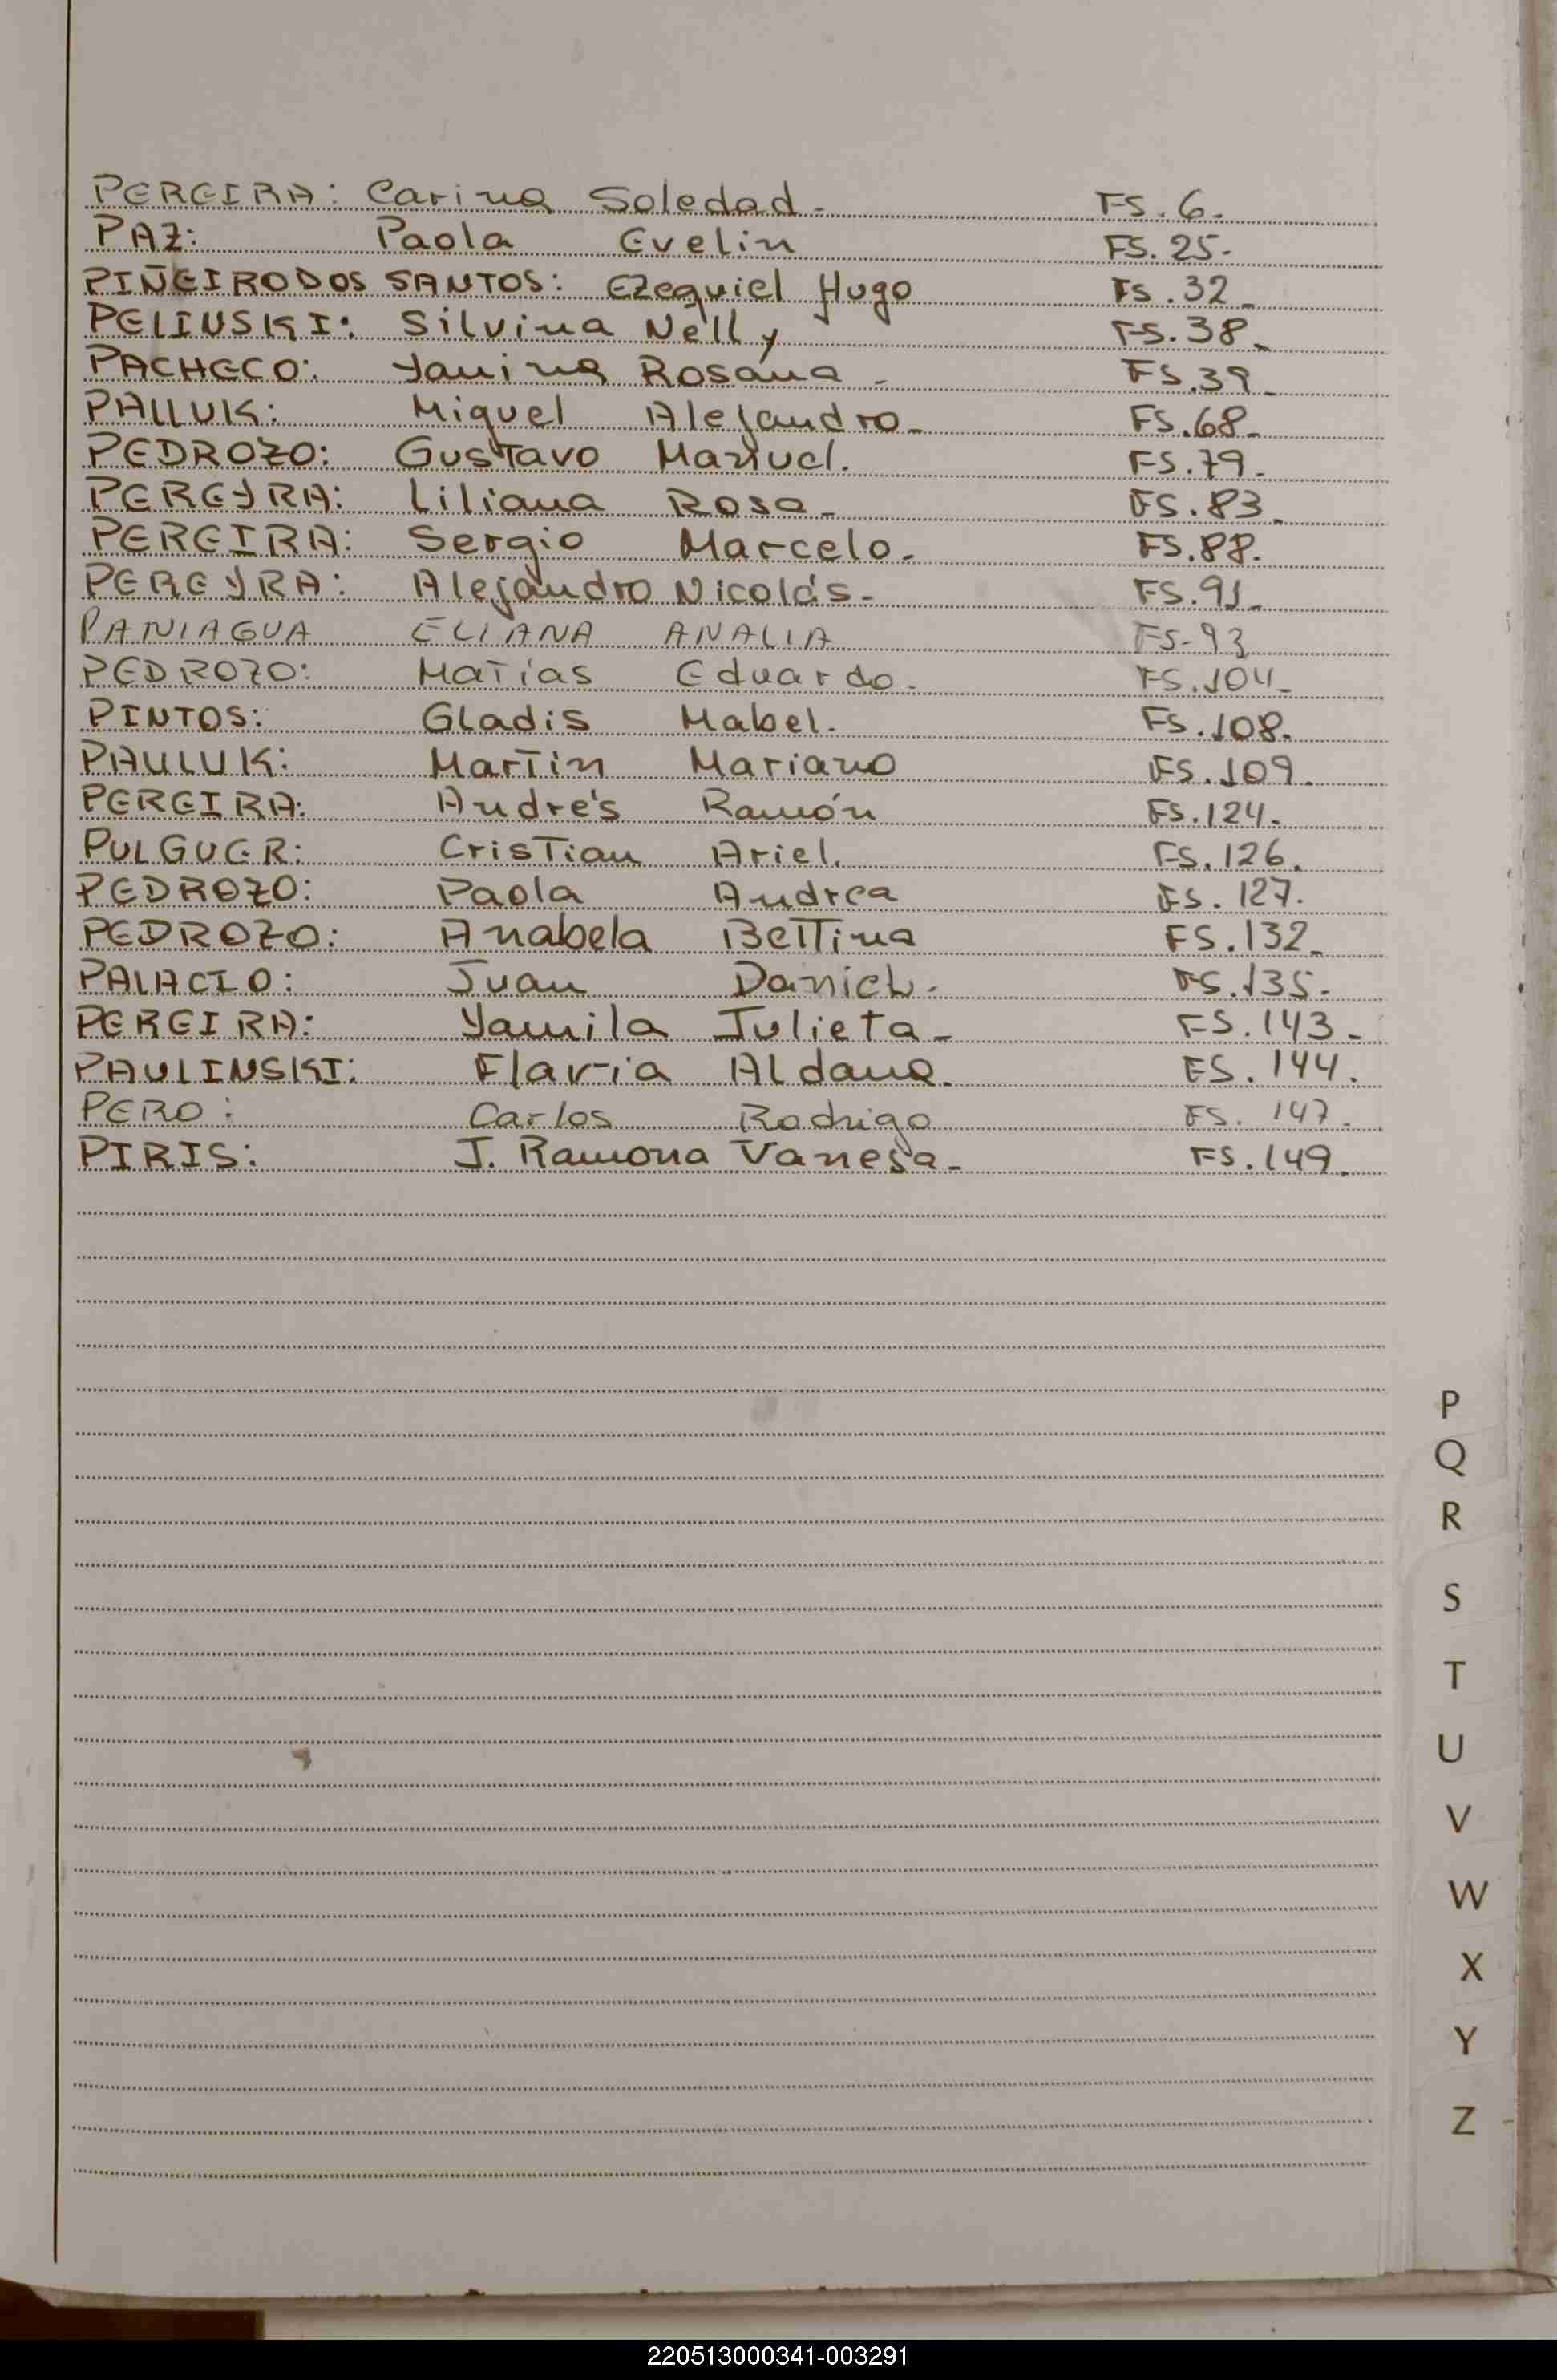 PEREIRA: Carina Soledad- FS.6-
PAZ: Paola Evelin FS.25-
PIÑEIRO DOS SANTOS: Ezequiel Hugo FS.32-
PELINSKI: Silvina Nelly FS.38-
PACHECO: Yanina Rosana - FS.39-
PALLUK: Miguel Alejandro- FS.68-
PEDROZO: Gustavo Manuel. FS.79-
PEREYRA: Liliana Rosa- FS.83-
PEREIRA: Sergio Marcelo- FS.88.
PEREYRA: Alejandro Nicolás- FS.91-
PANIAGUA ELIANA ANALIA FS-93
PEDROZO: Matías Eduardo- FS.104-
PINTOS: Gladis Mabel. FS.108.
PAULUK: Martin Mariano FS.109-
PEREIRA: Andrés Ramón FS.124-
PULGUER: Cristian Ariel. FS.126.
PEDROZO: Paola Andrea FS.127.
PEDROZO: Anabela Bettina FS.132-
PALACIO: Juan Daniel- FS.135-
PEREIRA: Yamila Julieta- FS.143-
PAULINSKI: Flavia Aldana. FS.144.
PERO: Carlos Rodrigo FS. 147-
PIRIS: J. Ramona Vanesa- FS.149-
P
Q
R
S
T
U
V
W
X
Y
Z
220513000341-003291